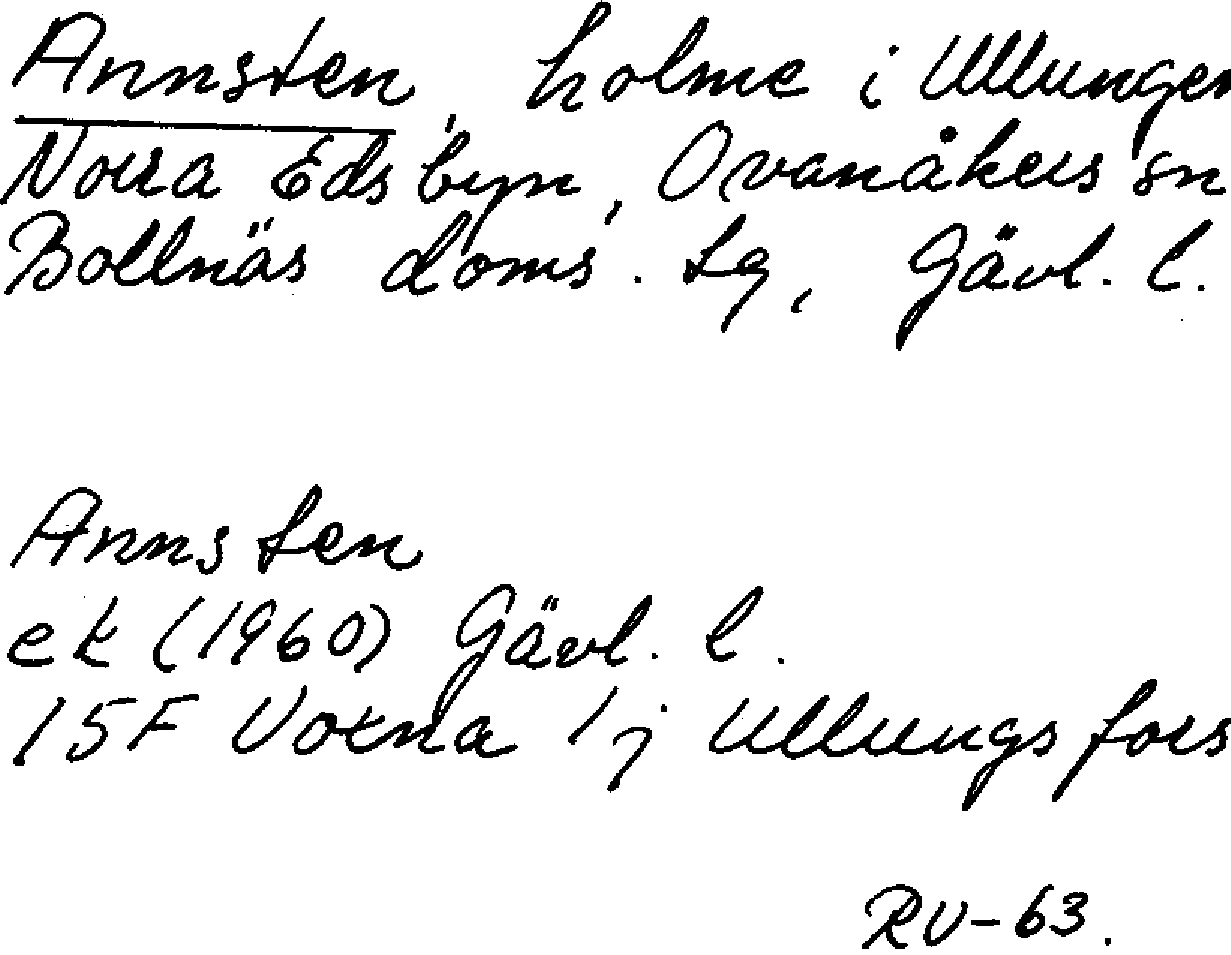 Annsten, holme i Ullungen
Norra Edsbyn, Ovanåkers sn
Bollnäs doms. tg, Gävl. l.
Annsten
ek (1960) Gävl. l.
15F Voxna 1j Ullungsfors
RV-63.